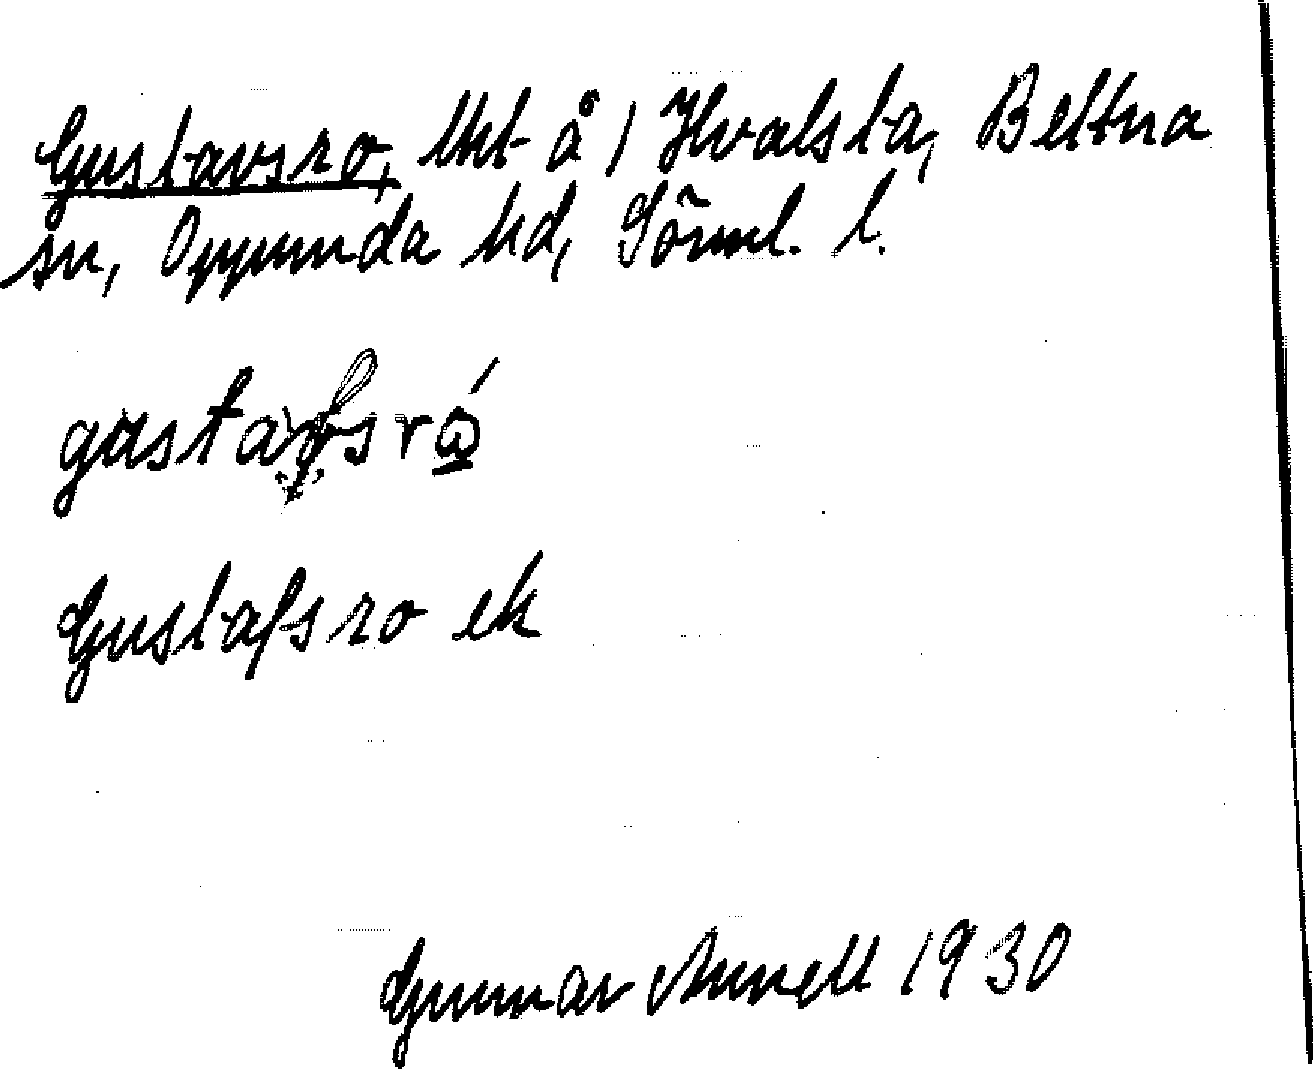 Gustavsro, lht å 1 Hvalsta, Bettna
sn, Oppunda hd, Sörml. l.
gustafsró
Gustafsro ek
Gunnar 1930